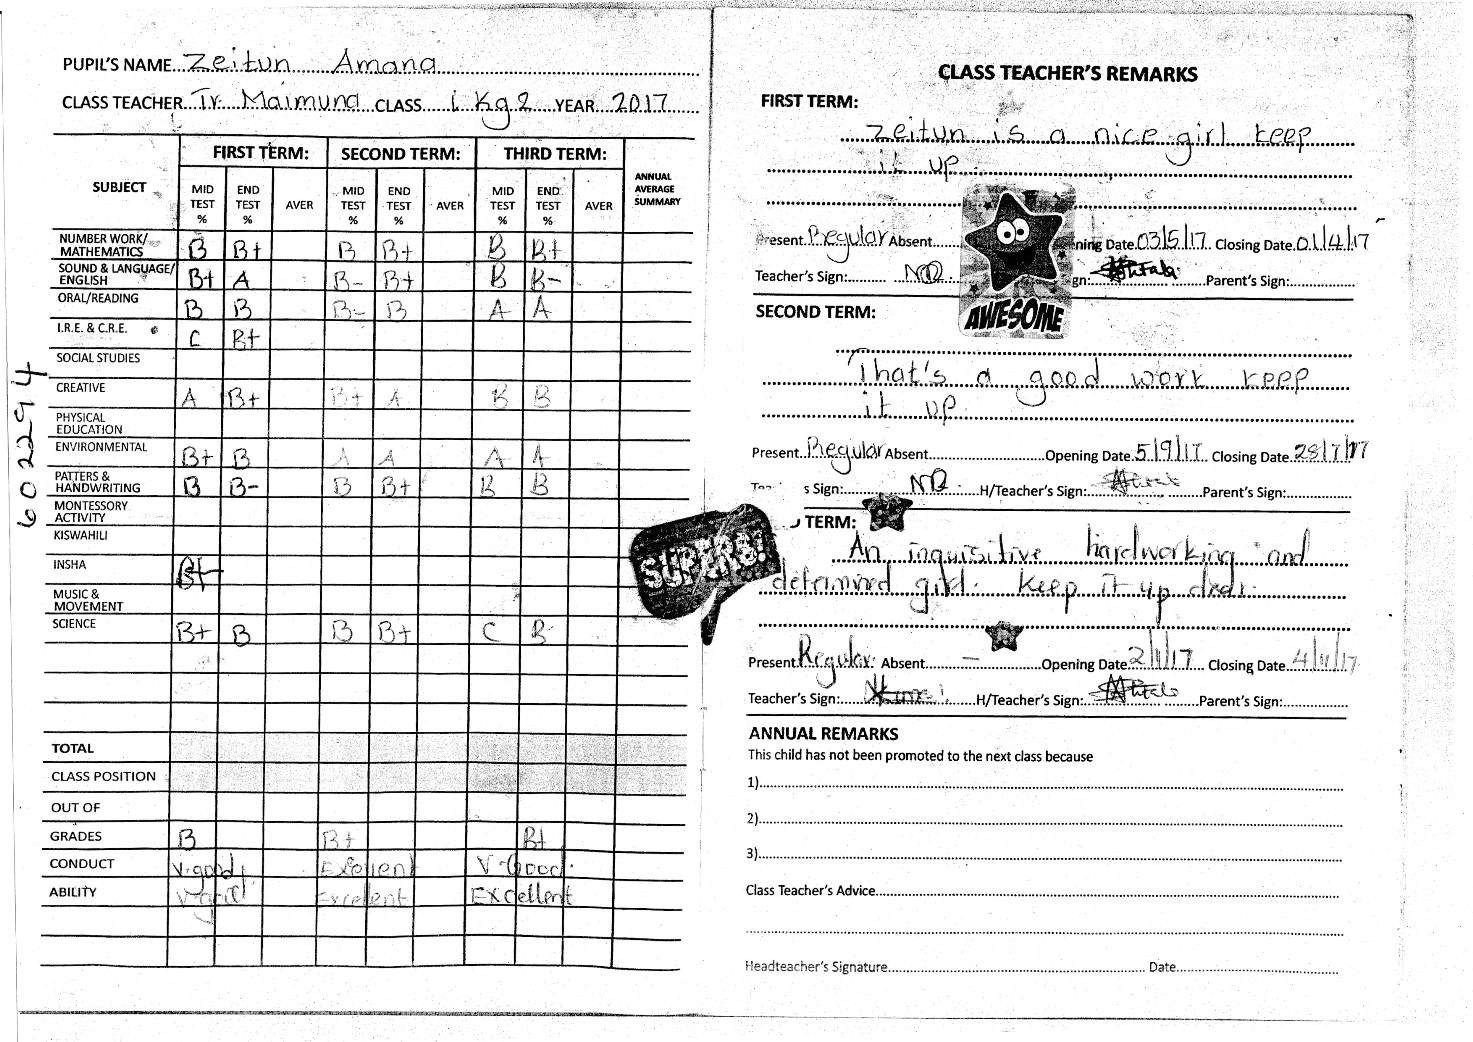 PUPIL'S NAME...Zeitun Amana
CLASS TEACHER...Tr. Maimuna CLASS...1 Kg 2 YEAR...2017
FIRST TERM: SECOND TERM: THIRD TERM: ANNUAL AVERAGE SUMMARY
SUBJECT MID TEST % END TEST % AVER MID TEST % END TEST % AVER MID TEST % END TEST % AVER
NUMBER WORK/ MATHEMATICS B B+ B B+ B B+
SOUND & LANGUAGE/ ENGLISH B+ A B- B+ B B-
ORAL/READING B B B- B A A
I.R.E. & C.R.E. C B+
SOCIAL STUDIES
CREATIVE A B+ B+ A B B
PHYSICAL EDUCATION
ENVIRONMENTAL B+ B A A A A
PATTERS & HANDWRITING B B- B B+ B B
MONTESSORY ACTIVITY
KISWAHILI
INSHA B+
MUSIC & MOVEMENT
SCIENCE B+ B B B+ C B
TOTAL
CLASS POSITION
OUT OF
GRADES B B+ B+
CONDUCT V.good Exellent V.Good.
ABILITY V.good Excellent Excellent
602294
SUPERB!
CLASS TEACHER'S REMARKS
FIRST TERM:
Zeitun is a nice girl keep
it up
Present Regular Absent ning Date 03/5/17 Closing Date 01/4/17
Teacher's Sign: gn: Parent's Sign:
AWESOME
SECOND TERM:
That's a good work keep
it up.
Present Regular Absent Opening Date 5/9/17 Closing Date 28/7/17
s Sign: H/Teacher's Sign: Parent's Sign:
TERM:
An inquisitive hardworking and
determined girl. Keep it up
Present Regular Absent – Opening Date 2/1/17 Closing Date 4/11/17
Teacher's Sign: H/Teacher's Sign: Parent's Sign:
ANNUAL REMARKS
This child has not been promoted to the next class because
1)
2)
3)
Class Teacher's Advice
Headteacher's Signature Date